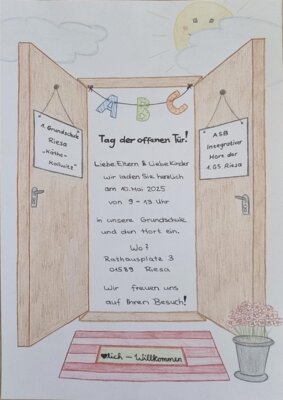 A B C
Tag der offenen Tür!
1. Grundschule
Riesa
„Käthe-
Kollwitz"
ASB
Integrativer
Hort der
1. GS Riesa
Liebe Eltern & Liebe Kinder
wir laden Sie herzlich
am 10. Mai 2025
von 9 - 13 Uhr
in unsere Grundschule
und den Hort ein.
Wo?
Rathausplatz 3
01589 Riesa
Wir freuen uns
auf Ihren Besuch!
♥lich - Willkommen